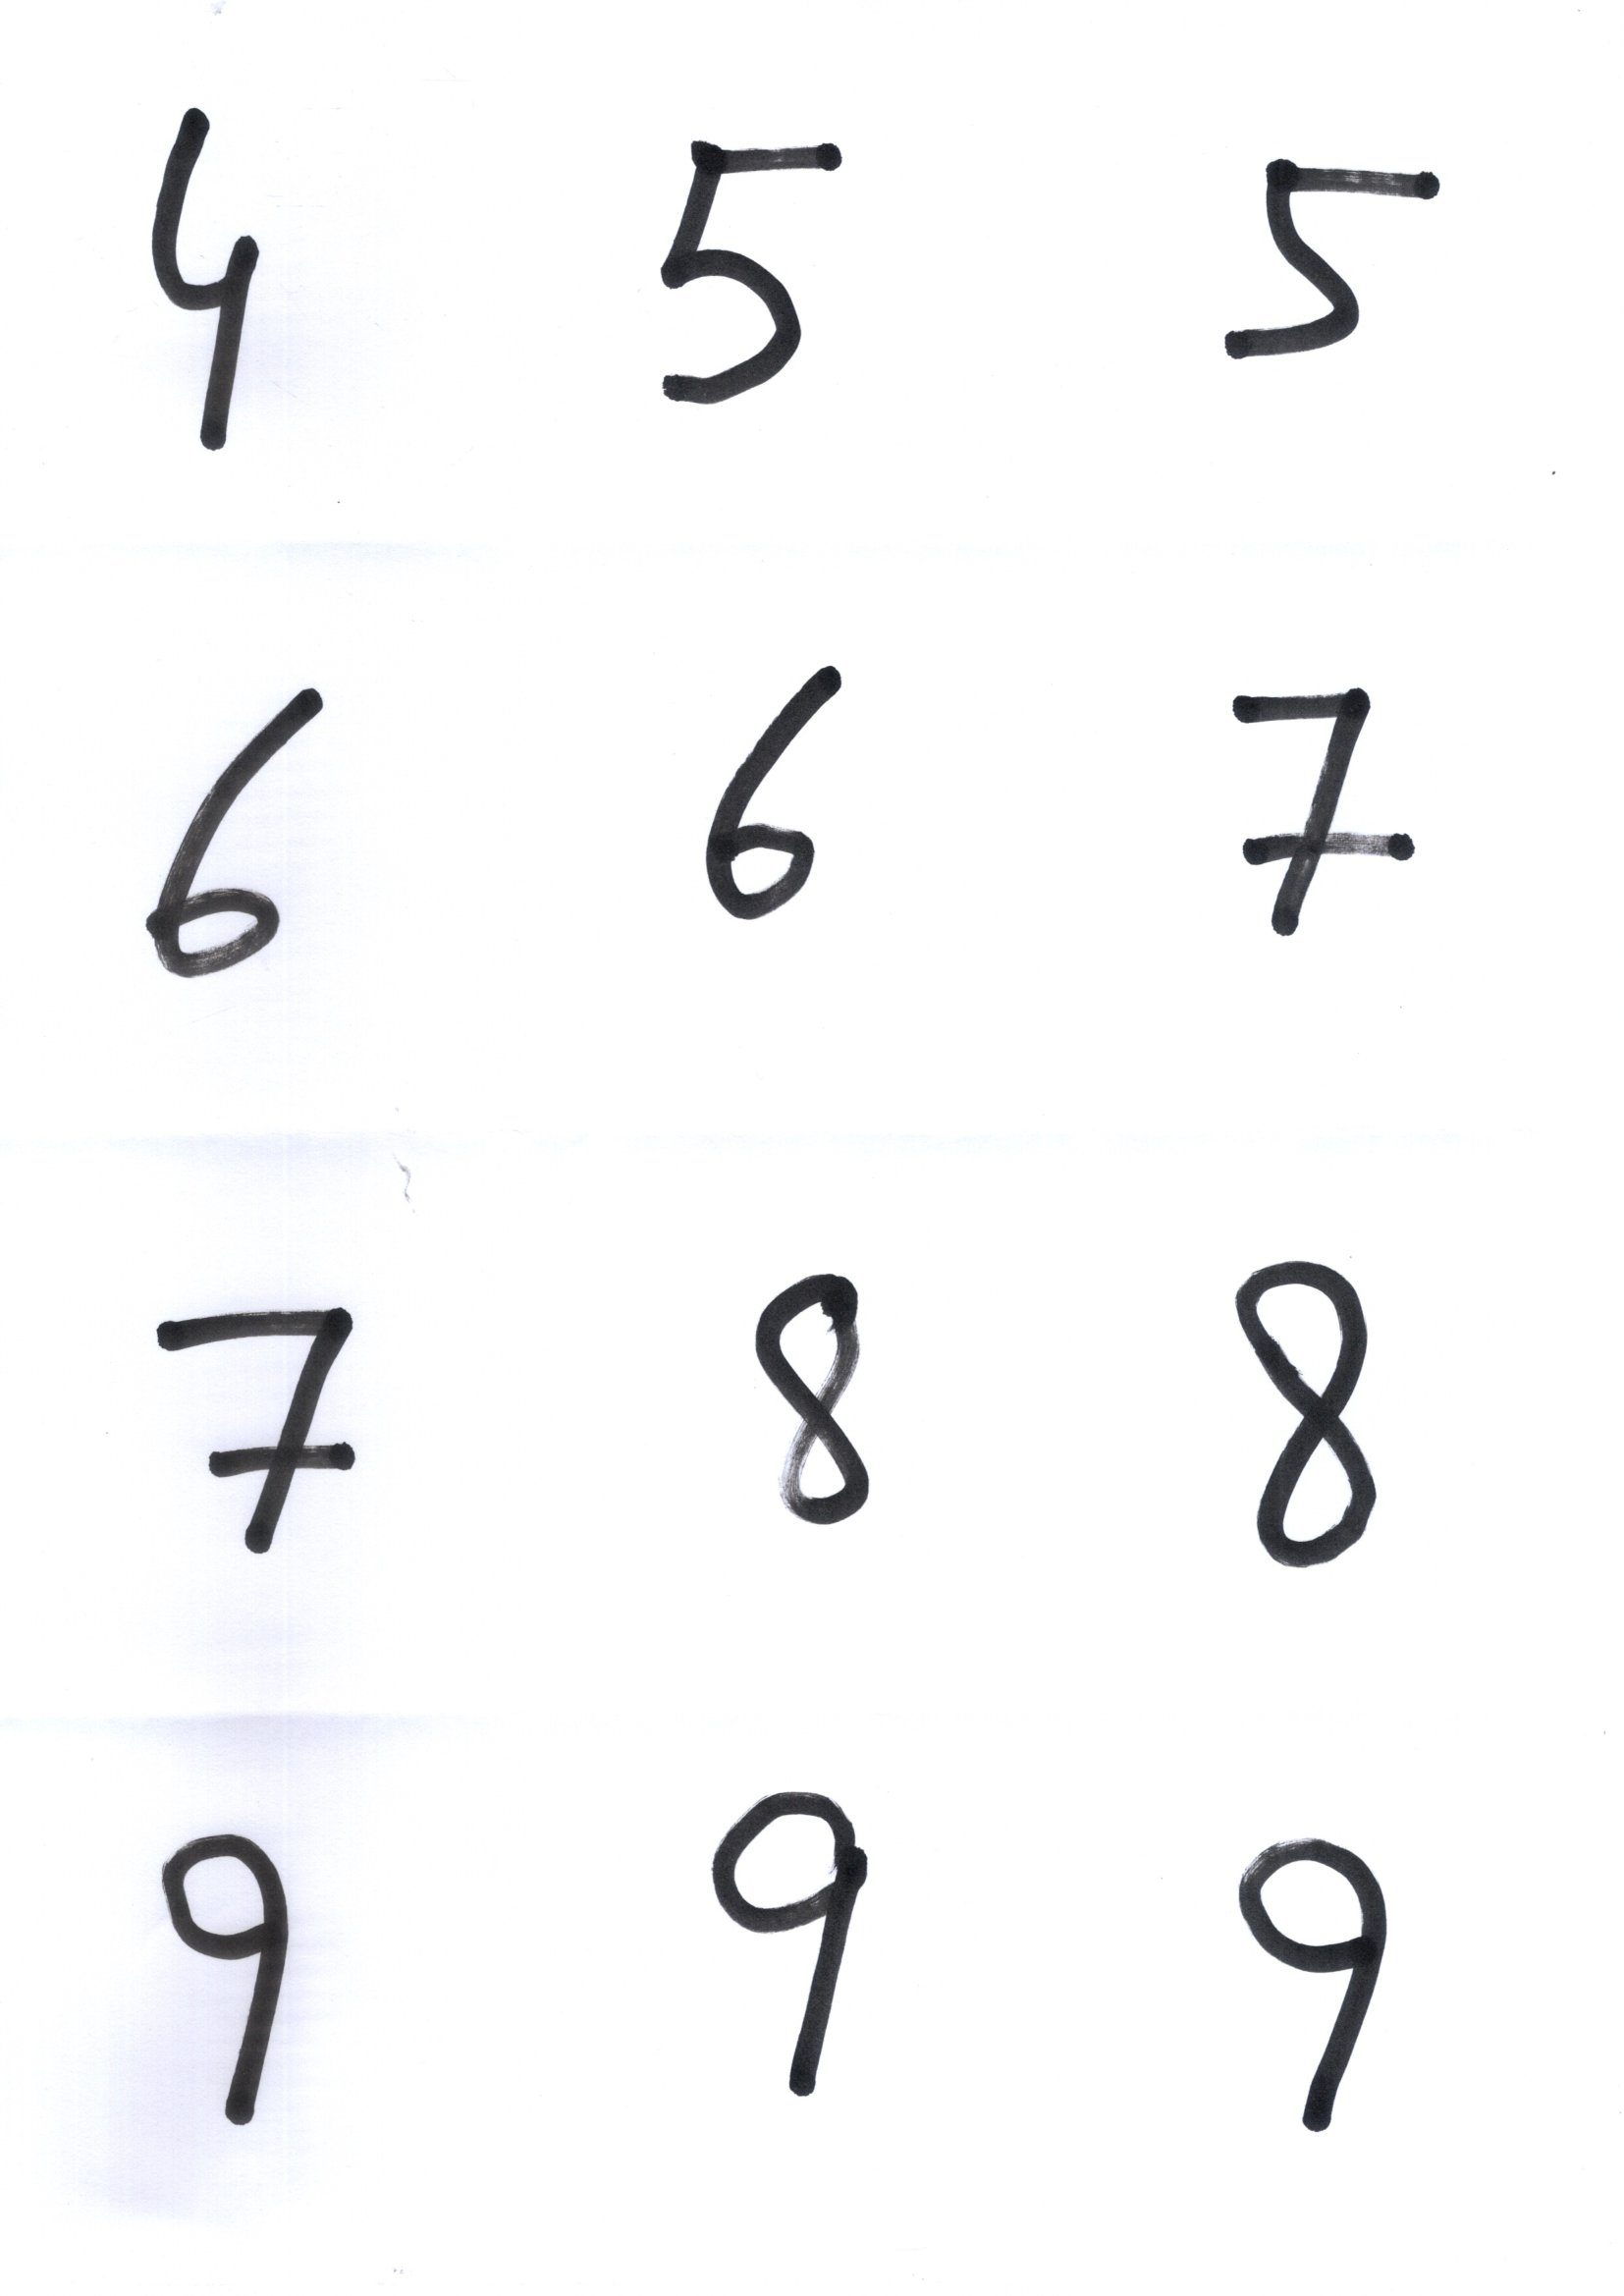 4 5 5
6 6 7
7 8 8
9 9 9